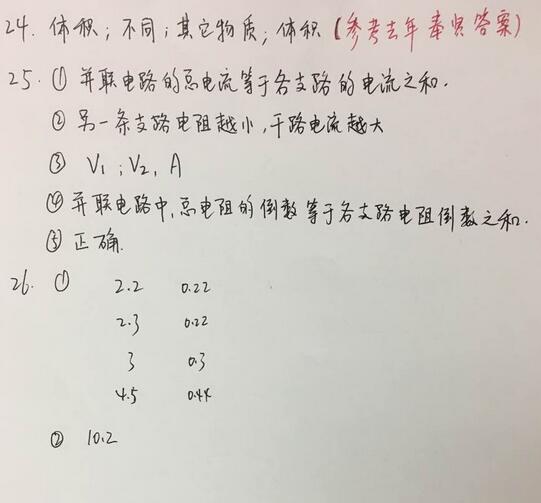 24. 体积；不同；其它物质；体积（参考去年奉贤答案）
25. ① 并联电路的总电流等于各支路的电流之和.
② 另一条支路电阻越小，干路电流越大
③ V1；V2，A
④ 并联电路中，总电阻的倒数等于各支路电阻倒数之和.
⑤ 正确.
26. ① 2.2 0.22
2.3 0.22
3 0.3
4.5 0.44
② 10.2